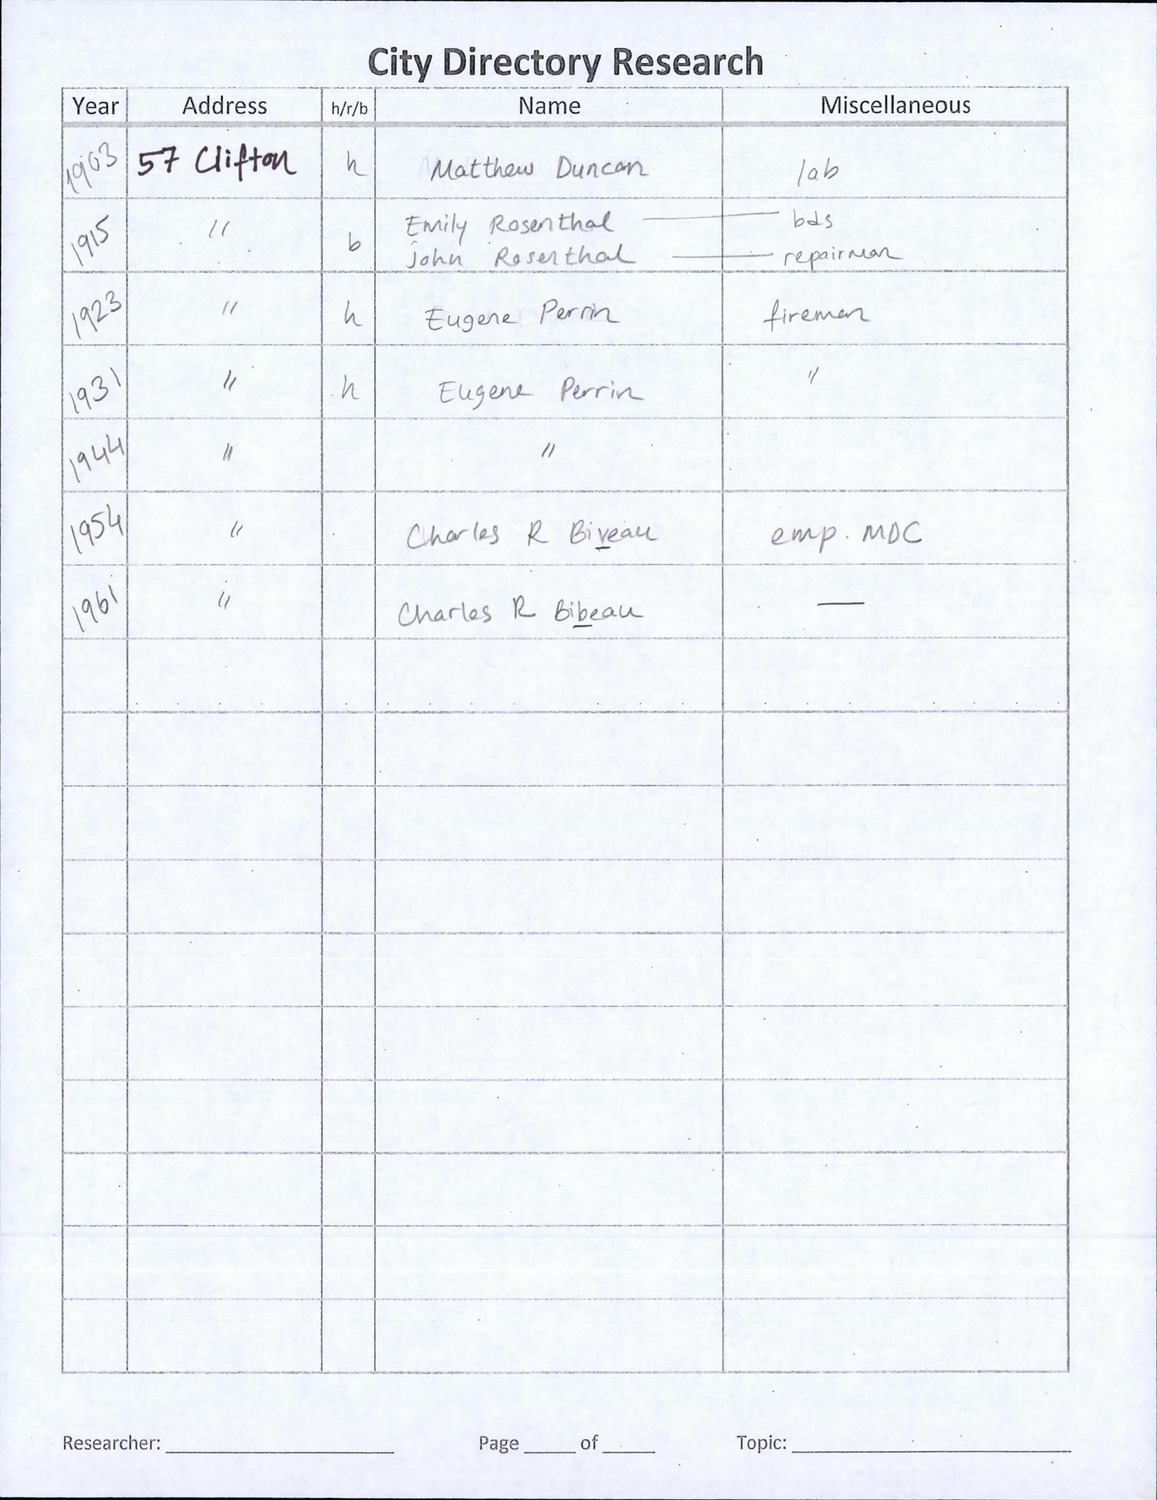 City Directory Research
Year Address h/r/b Name Miscellaneous
1903 57 Clifton h Matthew Duncan lab
1915 " b Emily Rosenthal — bds
John Rosenthal — repairman
1923 " h Eugene Perrin fireman
1931 " h Eugene Perrin "
1944 " "
1954 " Charles R Biveau emp. MDC
1961 " Charles R Bibeau —
Researcher: Page of Topic: